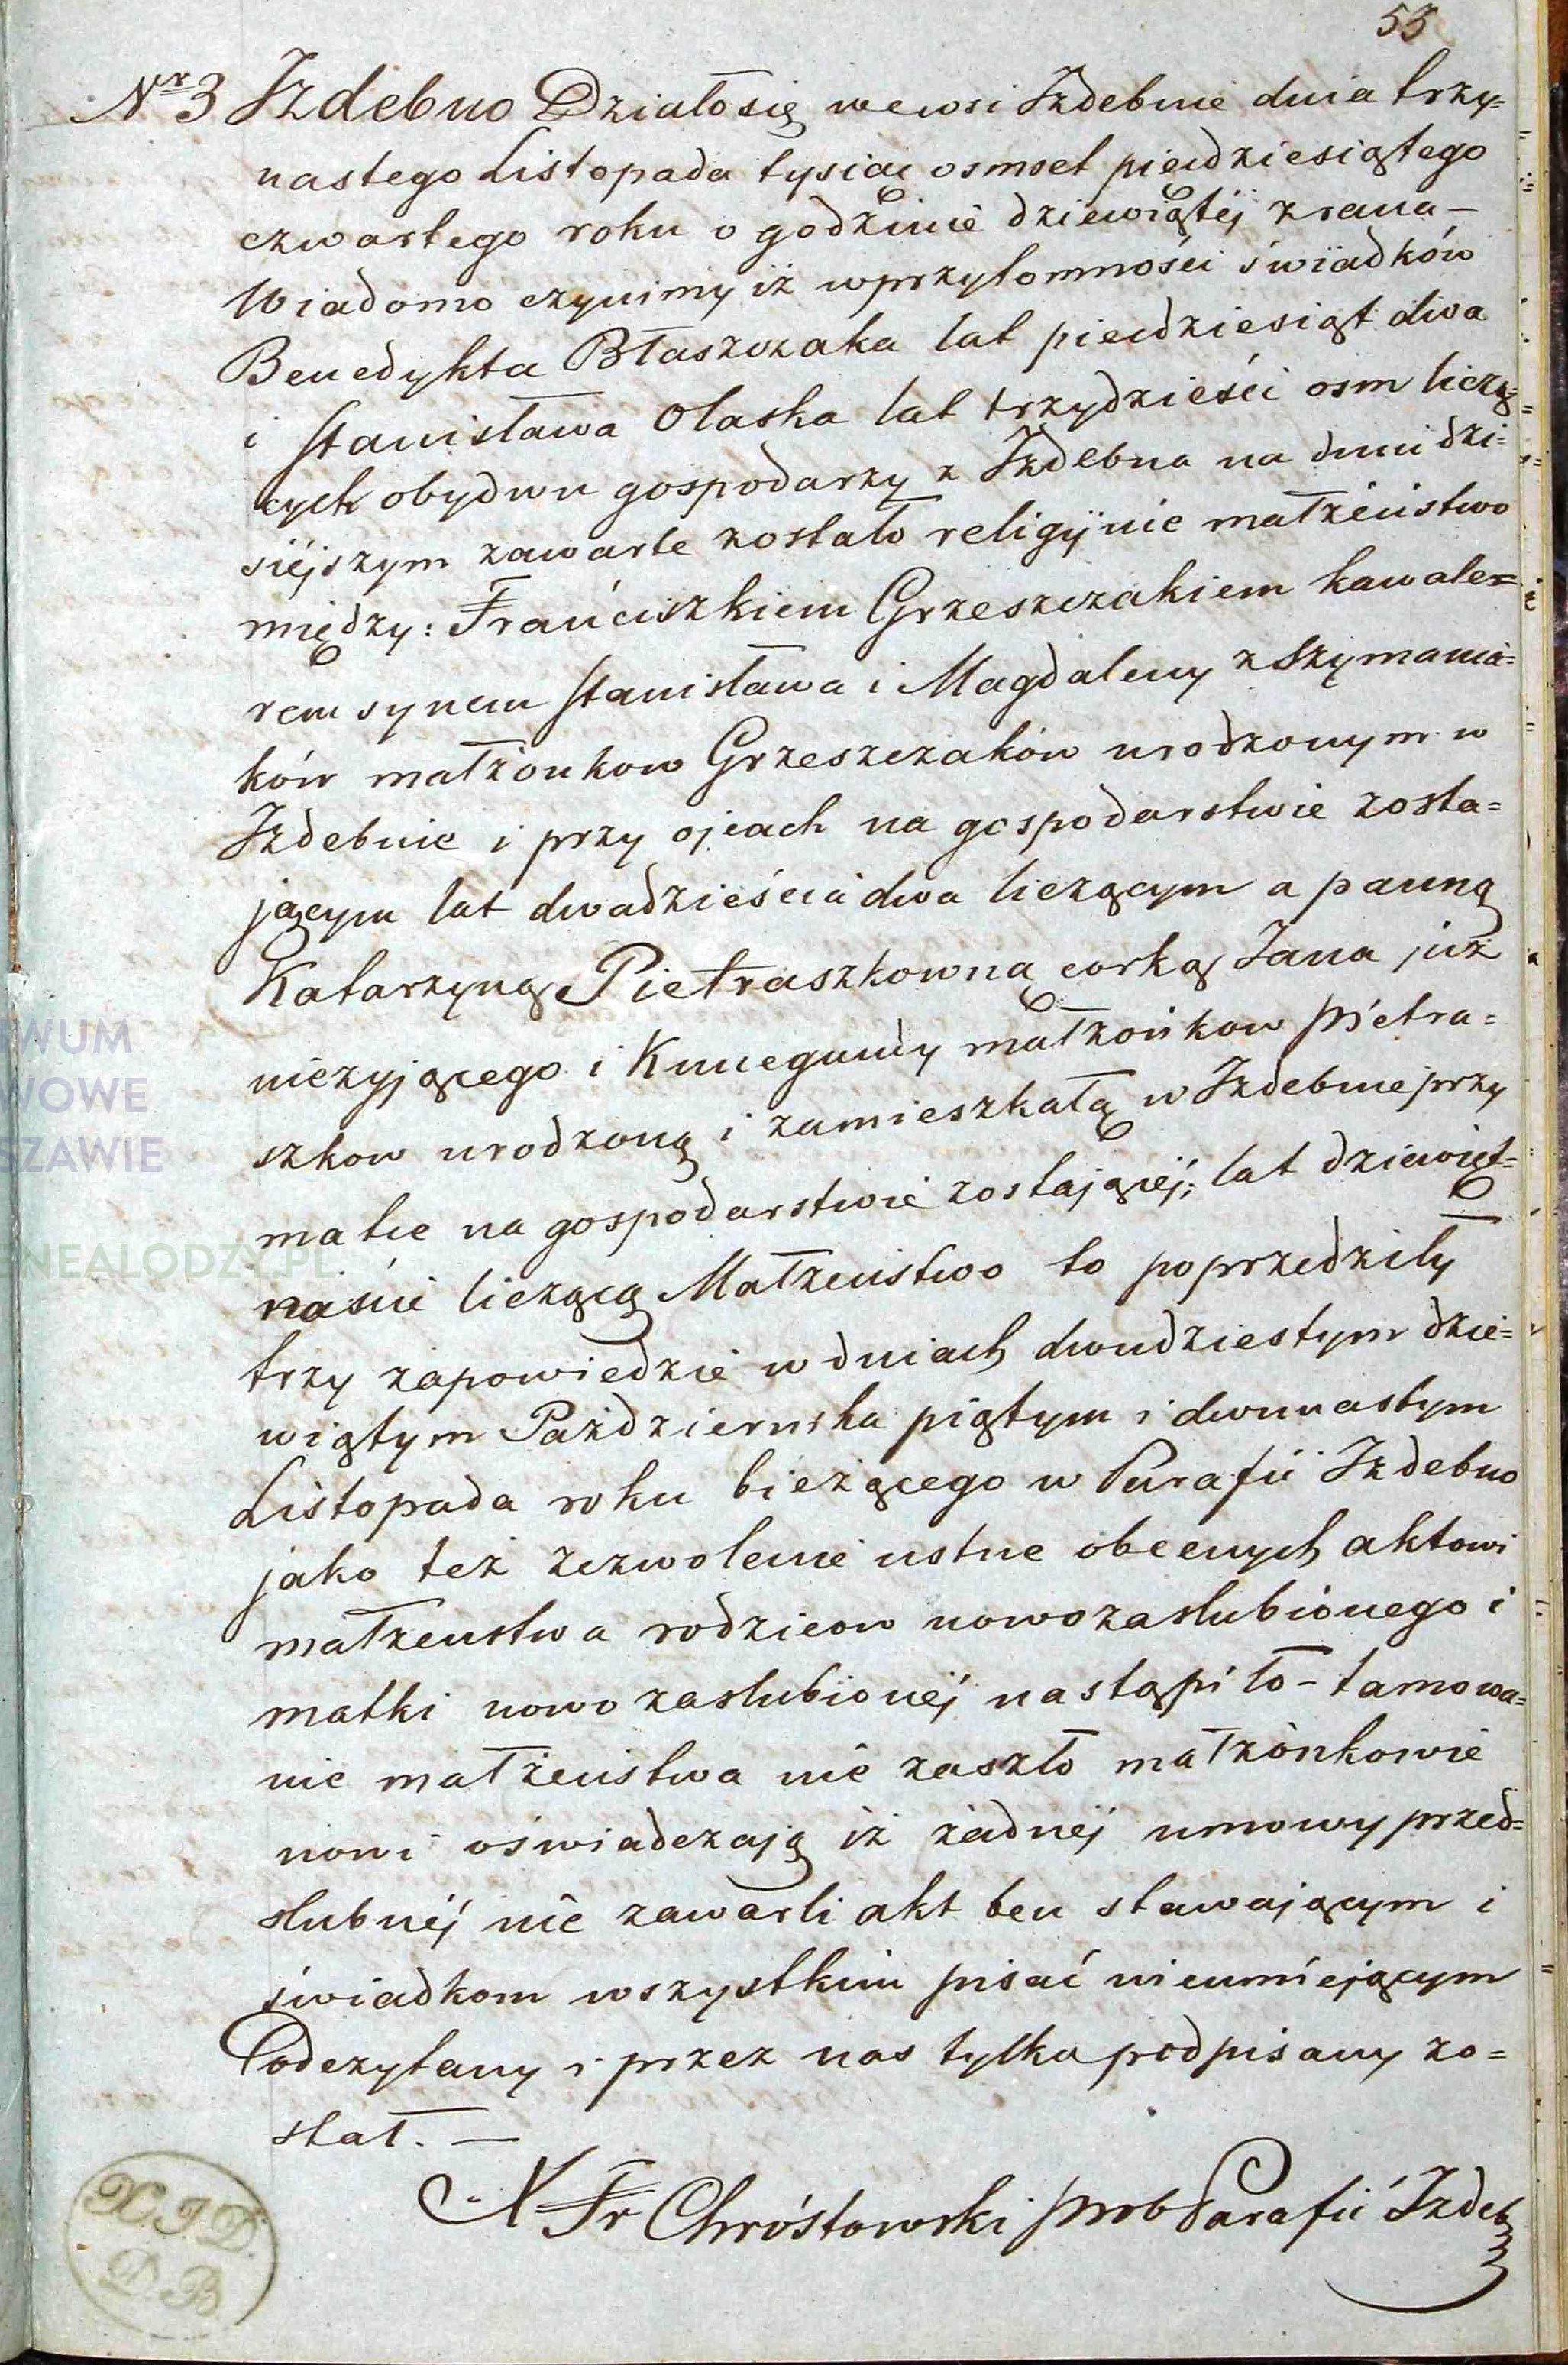 53
Nr 3 Izdebno Działo się we wsi Izdebnie dnia trzy=
nastego Listopada tysiąc osmset piędziesiątego
czwartego roku o godzinie dziewiątej z rana –
Wiadomo czynimy iż w przytomności świadków
Benedykta Błaszczaka lat piędziesiąt dwa
i Stanisława Olaska lat trzydzieści osm liczą=
cych obydwu gospodarzy z Izdebna na dniu dzi=
siejszym zawarte zostało religijnie małżeństwo
między: Franciszkiem Grzeszczakiem kawale=
rem synem Stanisława i Magdaleny z Szymania=
ków małżonkow Grzeszczaków urodzonym w
Izdebnie i przy ojcach na gospodarstwie zosta=
jącym lat dwadzieścia dwa liczącym a panną
Katarzyną Pietraszkowną corką Jana już
nieżyjącego i Kunegundy małżonkow Pietra=
szkow urodzoną i zamieszkałą w Izdebnie przy
matce na gospodarstwie zostającéj; lat dziewięt=
naście liczącą Małżeństwo to poprzedziły
trzy zapowiedzie w dniach dwudziestym dzie=
wiątym Października piątym i dwunastym
Listopada roku bieżącego w Parafii Izdebno
jako też zezwolenie ustne obecnych aktowi
małżenstwa rodzicow nowozaslubionego i
matki nowo zaslubionéj nastąpiło – tamowa=
nie małżeństwa nie zaszło małżonkowie
nowi oświadczają iż żadnéj umowy przed=
slubnéj nie zawarli akt ten stawającym i
świadkom wszystkim pisać nieumiejącym
Odczytany i przez nas tylko podpisany zo=
stał. —
X Fr Chróstowski prob Parafii Izdeb
X. J. D.
D. B.
WUM
WOWE
SZAWIE
ENEALODZY.PL